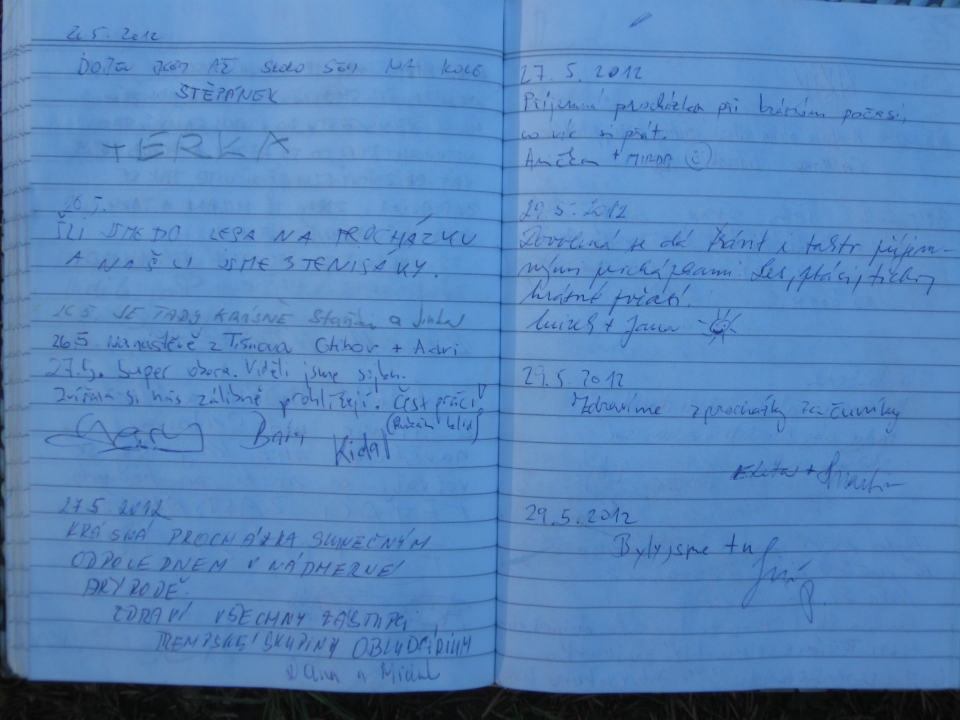 26.5. 2012
DOJEL JSEM AŽ SEM NA KOLE
ŠTĚPÁNEK
TERKA
26.5.
ŠLI JSME DO LESA NA PROCHÁZKU
A NAŠLI JSME STENISÁKY.
26.5. JE TADY KRÁSNE a
26.5 z Tišnova + Adri
27.5. Super obora. Viděli jsme
Zvířata si nás zálibně prohlížejí. Čest práci!
Bári
Kidal
27.5 2012
KRÁSNÁ PROCHÁZKA SLUNEČNÝM
ODPOLEDNEM V NÁDHERNÉ
PŘÍRODĚ.
ZDRAVÍ VŠECHNY ZÁSTUPCI
TREMPSKÉ SKUPINY OBLUDÁRIUM
a Michal
27. 5. 2012
Příjemná procházka při krásném počasí,
co víc si přát.
Anička + MIRDA
29.5. 2012
Dovolená se dá trávit i takto příjem-
nými procházkami. Les, ptáci, ticho,
krásné počasí.
+ Jana
29.5.2012
Zdravíme z procházky
29.5.2012
Byly jsme tu